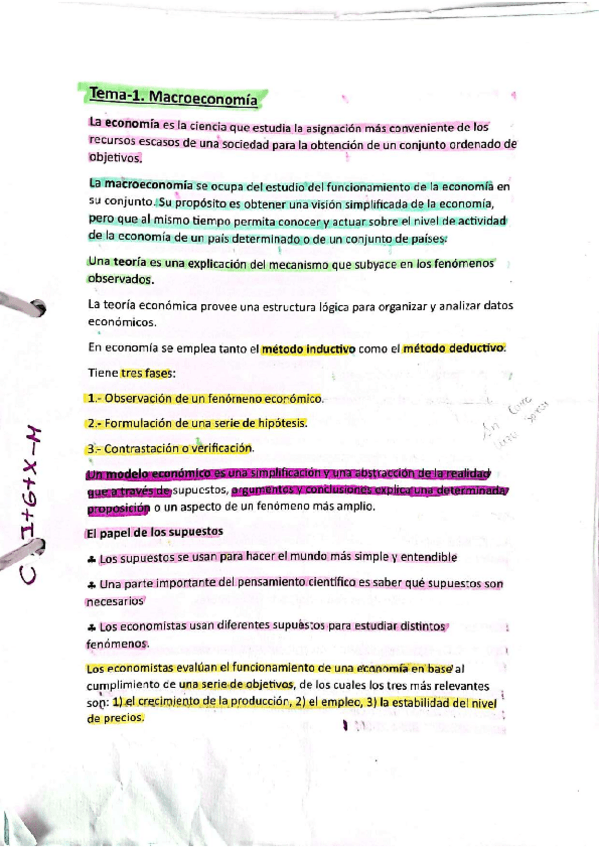 Tema-1. Macroeconomía
La economía es la ciencia que estudia la asignación más conveniente de los
recursos escasos de una sociedad para la obtención de un conjunto ordenado de
objetivos.
La macroeconomía se ocupa del estudio del funcionamiento de la economía en
su conjunto. Su propósito es obtener una visión simplificada de la economía,
pero que al mismo tiempo permita conocer y actuar sobre el nivel de actividad
de la economía de un país determinado o de un conjunto de países.
Una teoría es una explicación del mecanismo que subyace en los fenómenos
observados.
La teoría económica provee una estructura lógica para organizar y analizar datos
económicos.
En economía se emplea tanto el método inductivo como el método deductivo.
Tiene tres fases:
1.- Observación de un fenómeno económico.
2.- Formulación de una serie de hipótesis.
3.- Contrastación o verificación.
Un modelo económico es una simplificación y una abstracción de la realidad
que a través de supuestos, argumentos y conclusiones explica una determinada
proposición o un aspecto de un fenómeno más amplio.
El papel de los supuestos
♣ Los supuestos se usan para hacer el mundo más simple y entendible
♣ Una parte importante del pensamiento científico es saber qué supuestos son
necesarios
♣ Los economistas usan diferentes supuestos para estudiar distintos
fenómenos.
Los economistas evalúan el funcionamiento de una economía en base al
cumplimiento de una serie de objetivos, de los cuales los tres más relevantes
son: 1) el crecimiento de la producción, 2) el empleo, 3) la estabilidad del nivel
de precios.
I+G+X-M